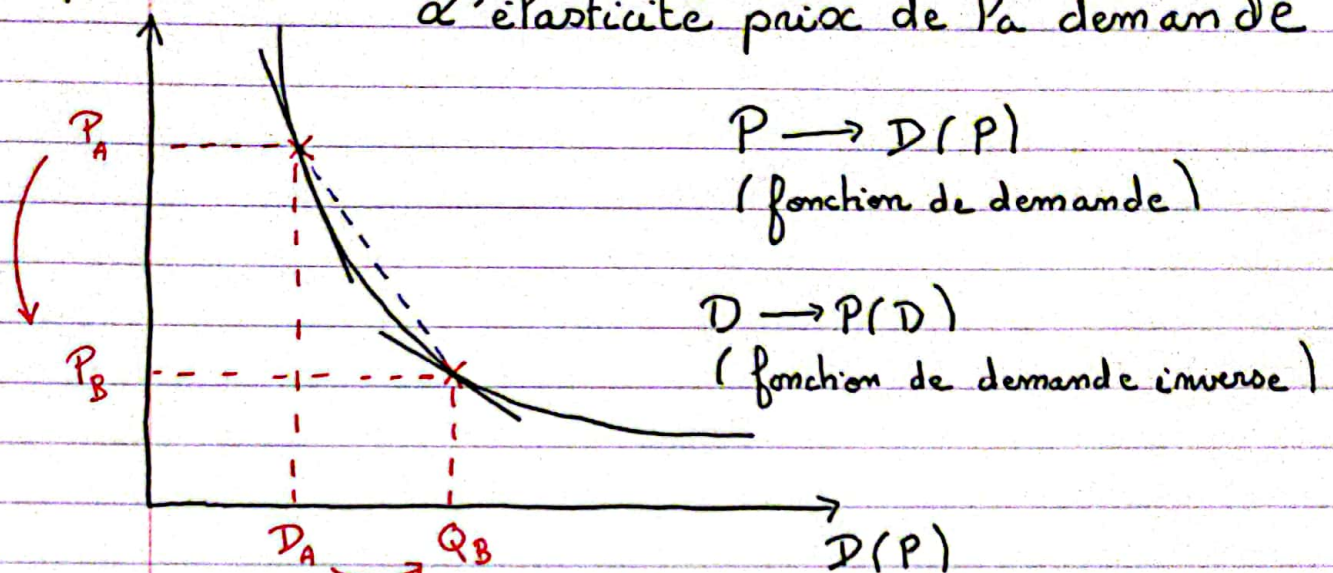 L'élasticité prix de la demande
P_A
P → D(P)
(fonction de demande)
D → P(D)
P_B
(fonction de demande inverse)
D_A → Q_B
D(P)